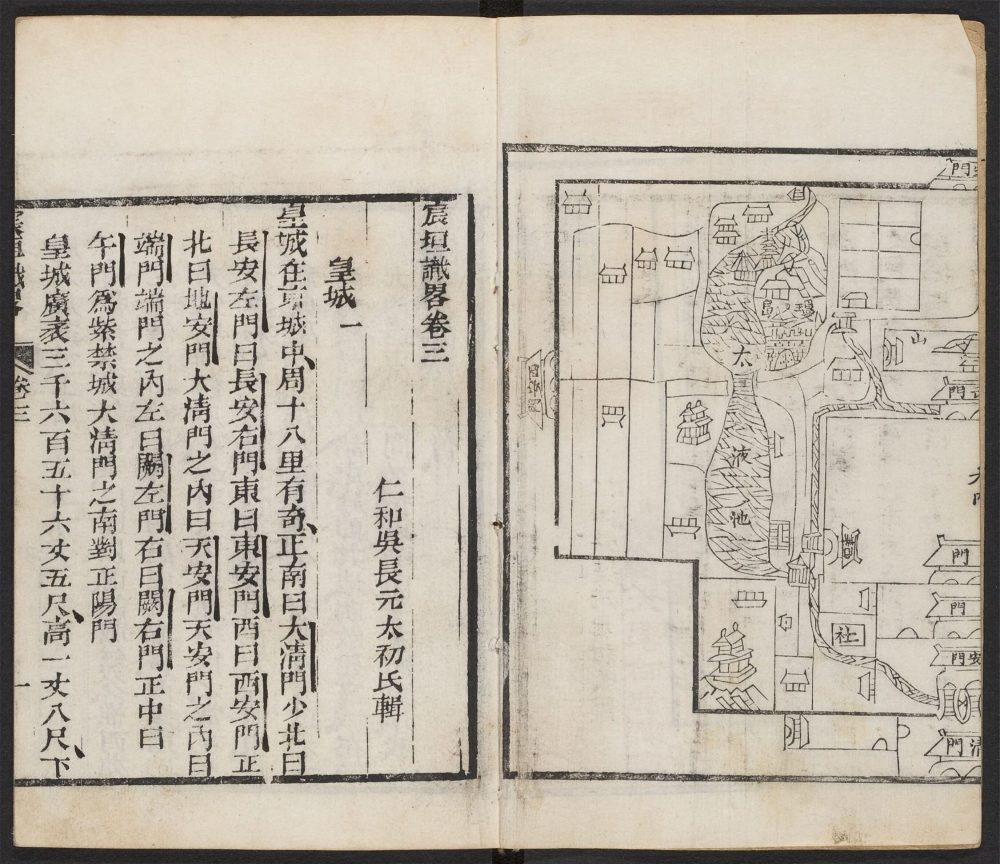 宸垣識畧卷三
仁和吳長元太初氏輯
皇城一
皇城在京城中周十八里有奇正南曰大淸門少北曰
長安左門曰長安右門東曰東安門西曰西安門正
北曰地安門大淸門之內曰天安門天安門之內曰
端門端門之內左曰闕左門右曰闕右門正中曰
午門爲紫禁城大淸門之南對正陽門
皇城廣袤三千六百五十六丈五尺高一丈八尺下
宸垣識畧
卷三
一
門
瓊島
太
液
池
山
門
門
門
社
安門
淸門